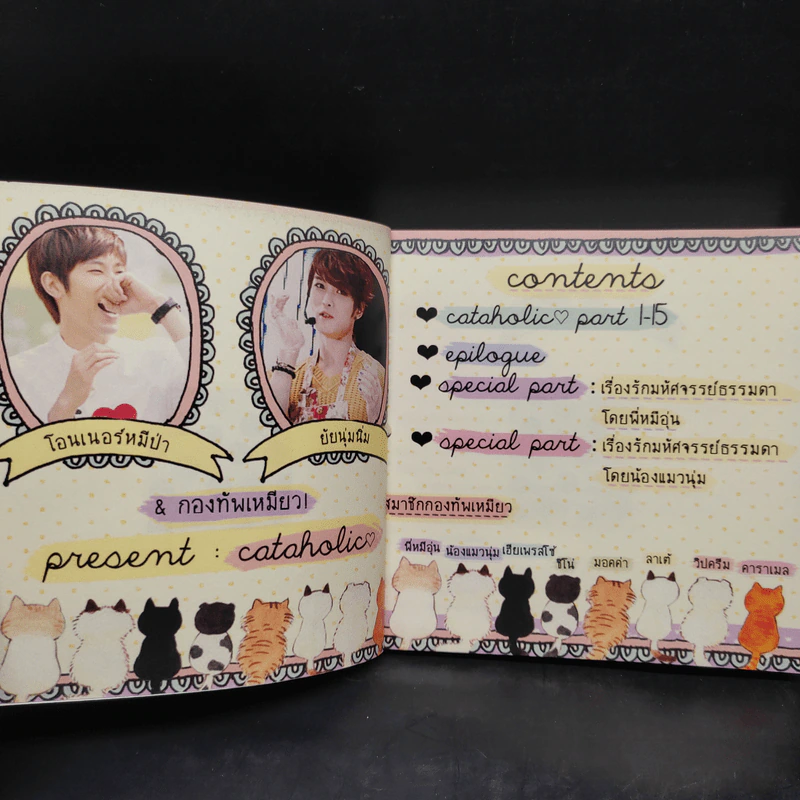 โอนเนอร์หมีป่า
ยัยนุ่มนิ่ม
& กองทัพเหมียว!
present : cataholic♡
contents
❤ cataholic♡ part 1-15
❤ epilogue
❤ special part : เรื่องรักมหัศจรรย์ธรรมดา
โดยพี่หมีอุ่น
❤ special part : เรื่องรักมหัศจรรย์ธรรมดา
โดยน้องแมวนุ่ม
สมาชิกกองทัพเหมียว
พี่หมีอุ่น น้องแมวนุ่ม เฮียเพรสโซ่ ชีโน่ มอคค่า ลาเต้ วิปครีม คาราเมล